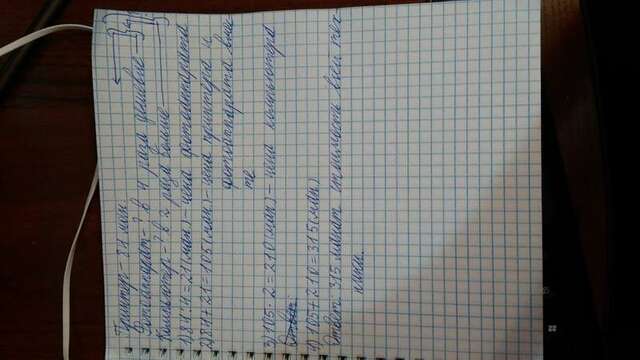 Принтер - 84 ман.
Фотоаппарат - ? в 4 раза дешевле
Компьютер - ? в 2 раза больше
1) 84 : 4 = 21 (ман) - цена фотоаппарата
2) 84 + 21 = 105 (ман) - цена принтера и
фотоаппарата вмес
те
3) 105 · 2 = 210 (ман) - цена компьютера
Ответ
4) 105 + 210 = 315 (ман)
Ответ: 315 манат стоимость всей тех
ники.